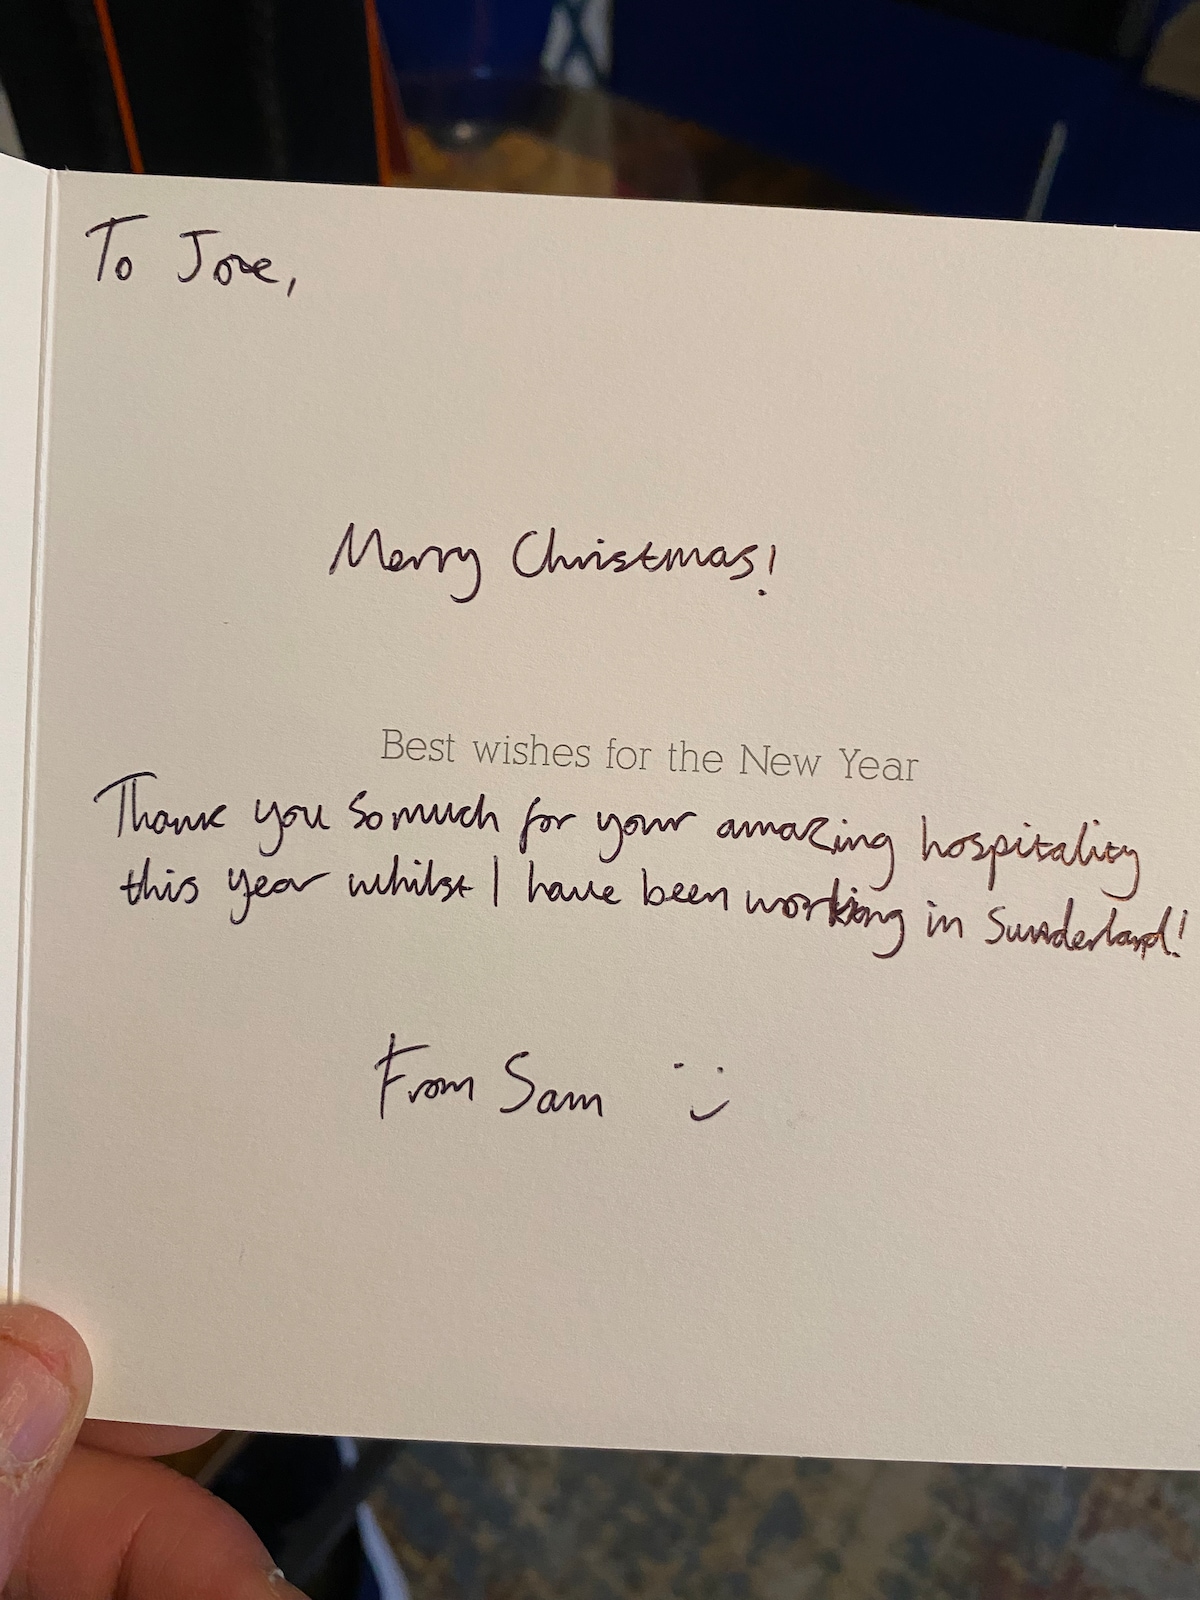 To Joe,
Merry Christmas!
Best wishes for the New Year
Thank you so much for your amazing hospitality
this year whilst I have been working in Sunderland!
From Sam :)